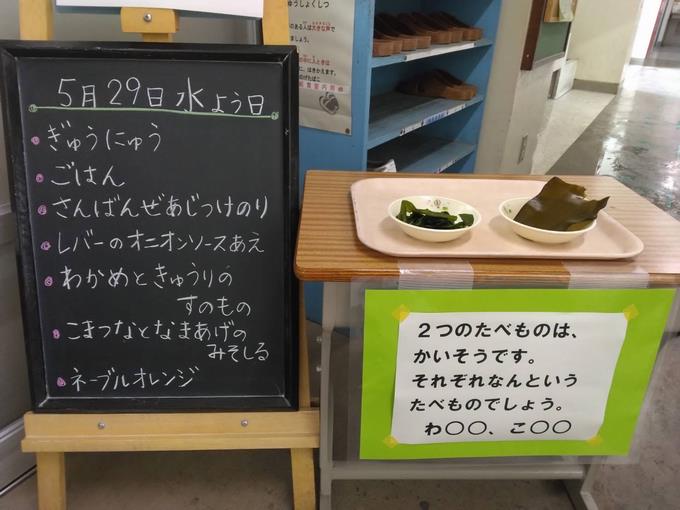 5月29日水よう日
ぎゅうにゅう
ごはん
さんばんぜあじつけのり
レバーのオニオンソースあえ
わかめときゅうりの
すのもの
こまつなとなまあげの
みそしる
ネーブルオレンジ
2つのたべものは、
かいそうです。
それぞれなんという
たべものでしょう。
わ〇〇、こ〇〇